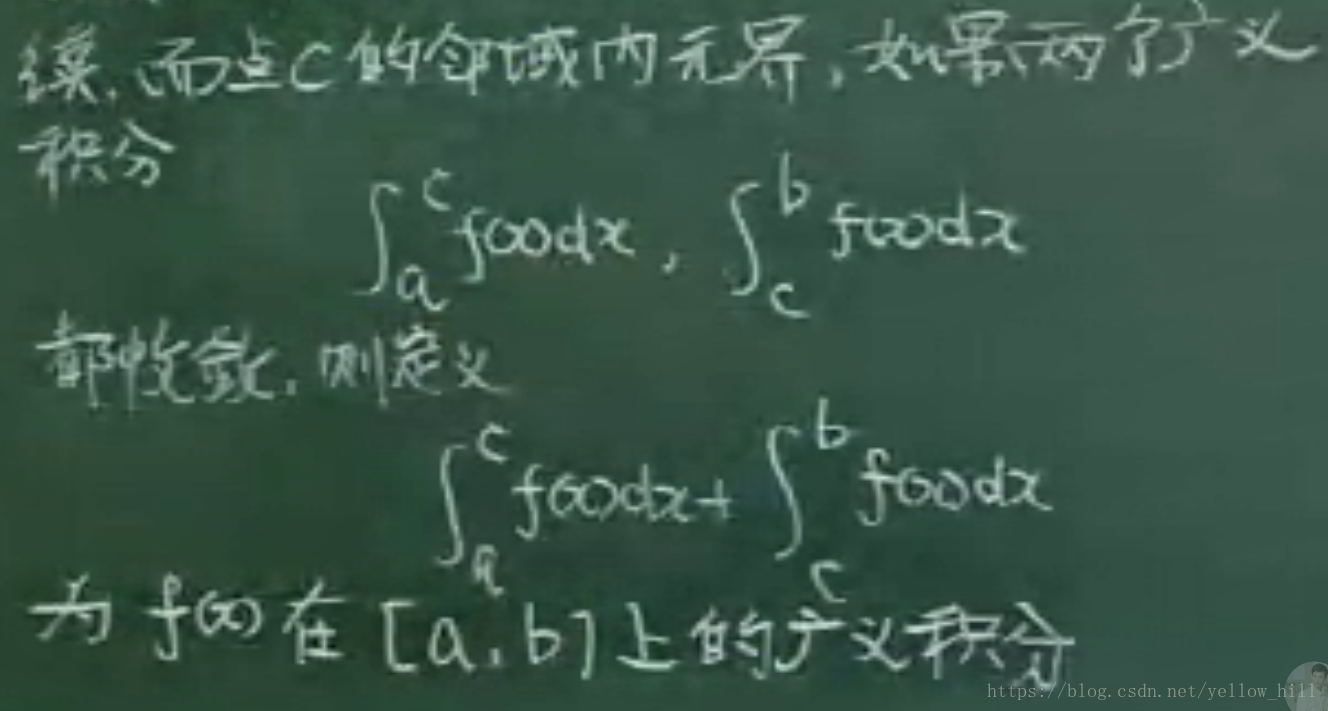 续,而点C的邻域内无界,如果两个广义
积分
∫_a^c f(x)dx, ∫_c^b f(x)dx
都收敛,则定义
∫_a^c f(x)dx+ ∫_c^b f(x)dx
为 f(x) 在 [a,b] 上的广义积分
https://blog.csdn.net/yellow_hill